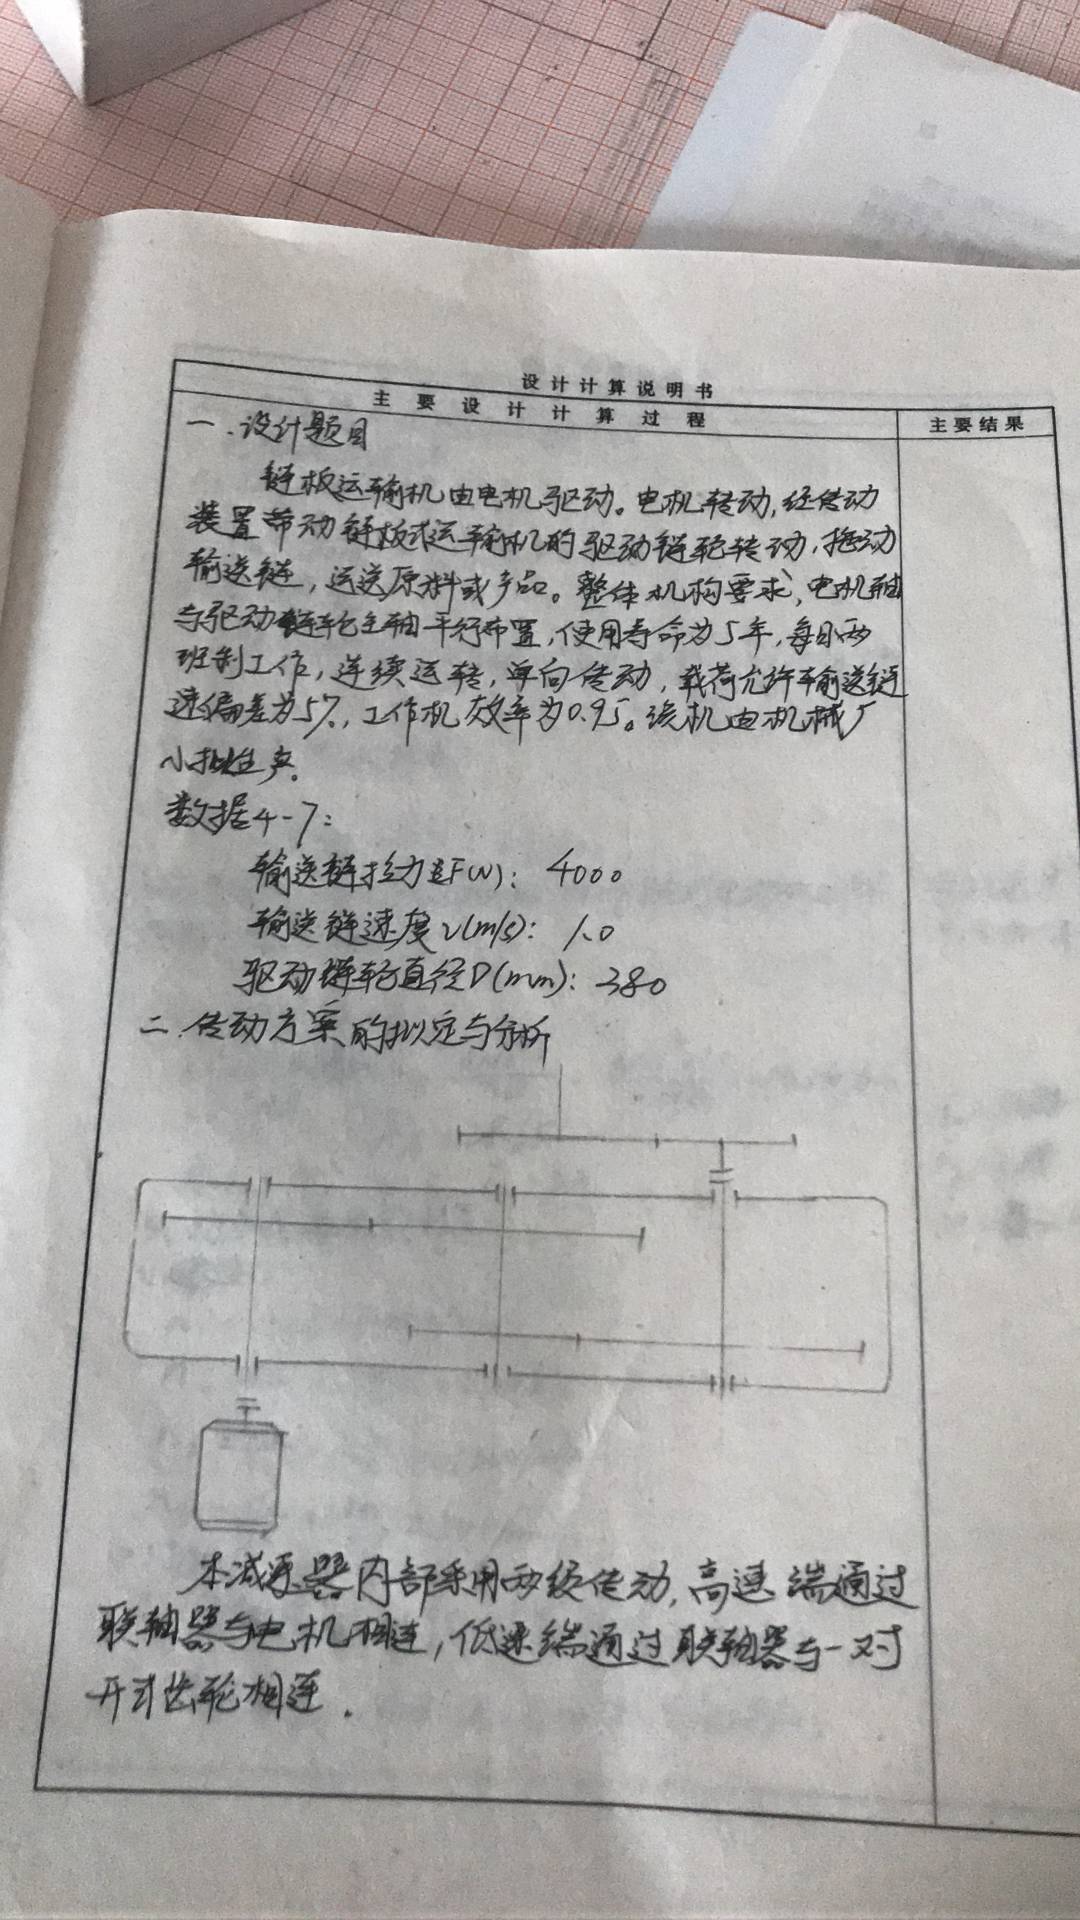 设计计算说明书
主要设计计算过程
主要结果
一.设计题目
链板运输机由电机驱动。电机转动,经传动
装置带动链板式运输机的驱动链轮转动,拖动
输送链,运送原料或产品。整体机构要求、电机轴
与驱动链轮主轴平行布置,使用寿命为5年,每日两
班制工作,连续运转,单向传动,载荷允许输送链
速偏差为5%,工作机效率为0.95。该机由机械厂
小批生产.
数据4-7:
输送链拉力F(N): 4000
输送链速度v(m/s): 1.0
驱动链轮直径D(mm): 380
二.传动方案的拟定与分析
本减速器内部采用两级传动,高速端通过
联轴器与电机相连,低速端通过联轴器与一对
开式齿轮相连.